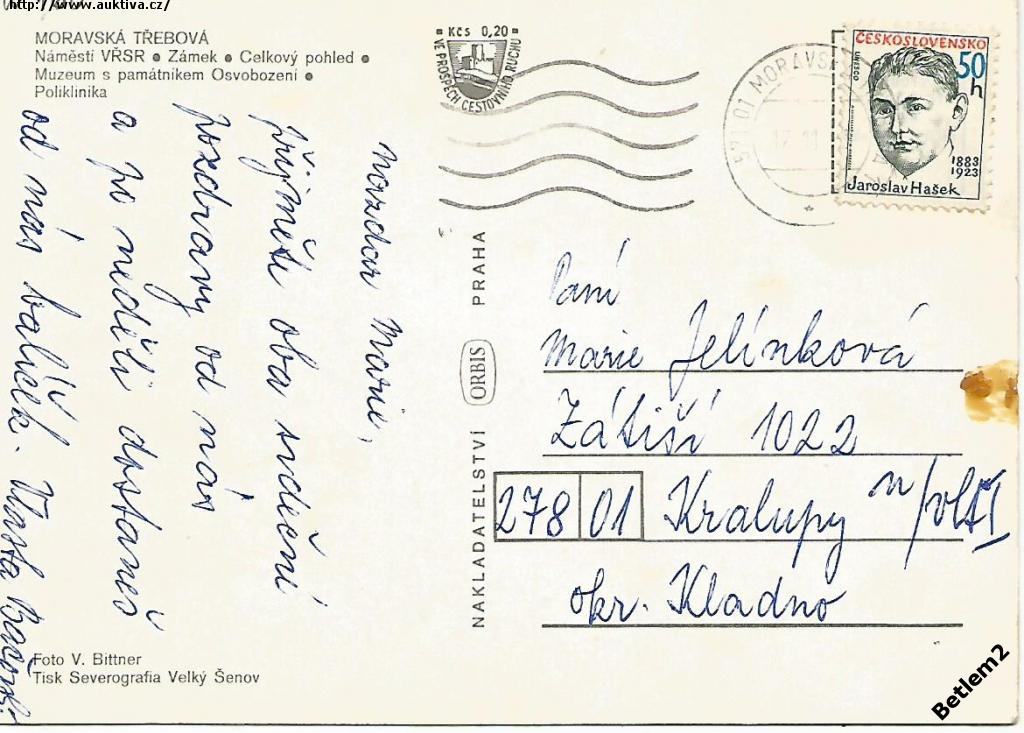 http://www.auktiva.cz/
MORAVSKÁ TŘEBOVÁ
Náměstí VŘSR • Zámek • Celkový pohled •
Muzeum s památníkem Osvobození •
Poliklinika
Kčs 0,20
VE PROSPĚCH CESTOVNÍHO RUCHU
571 01 MORAVSK
ČESKOSLOVENSKO
50 h
UNESCO
1883
1923
Jaroslav Hašek
Nazdar Marie,
přijměte oba srdeční
pozdravy od nás
a po neděli dostaneš
od nás balíček. Vlasta
NAKLADATELSTVÍ ORBIS PRAHA
Paní
Marie Jelínková
Zátiší 1022
278 01 Kralupy n/vlt
okr. Kladno
Foto V. Bittner
Tisk Severografia Velký Šenov
Betlem2